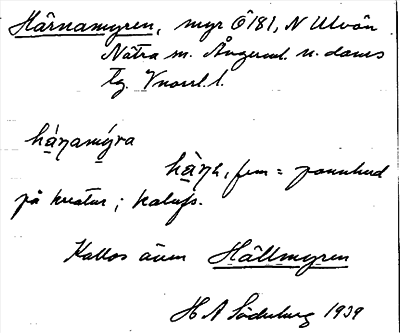 Härnamyren, myr Ö 181, N Ulvön
Nätra sn. Ångerml. n. doms
tg. Vnorrl. l.
há̱ŋamý̱ra
hà̱ŋa, fem = pannhud
på kreatur; kalufs.
Kallas även Hällmyren
H A Söderberg 1939